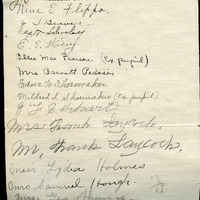 Nina E. Flippo
J. S. Beaver
E. T. Wiley
Ollie Mae Pearson (ex pupil)
Mrs Barnett Pederson
Edna W Shoemaker
Mildred S. Shoemaker (ex pupil)
J. E. Eckart
Mrs. Frank Laycock.
Mr. Frank Laycock.
Miss Lydia Holmes
Mrs Samuel Hough.